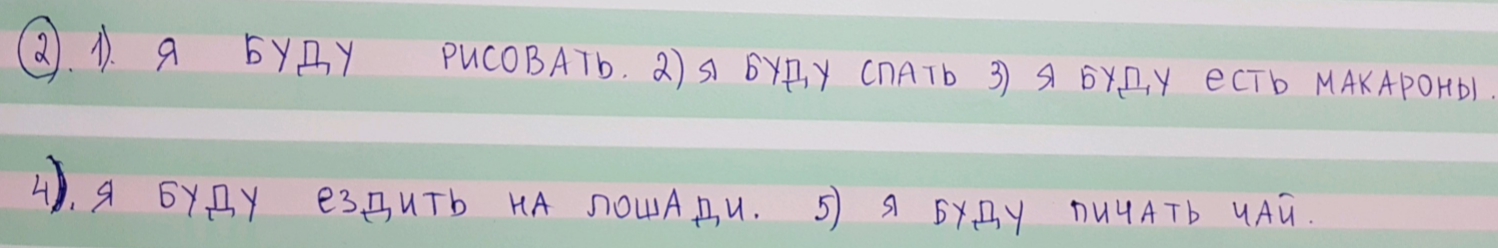 2. 1). Я БУДУ РИСОВАТЬ. 2) Я БУДУ СПАТЬ 3) Я БУДУ ЕСТЬ МАКАРОНЫ.
4). Я БУДУ ЕЗДИТЬ НА ЛОШАДИ. 5) Я БУДУ ПИЧАТЬ ЧАЙ.